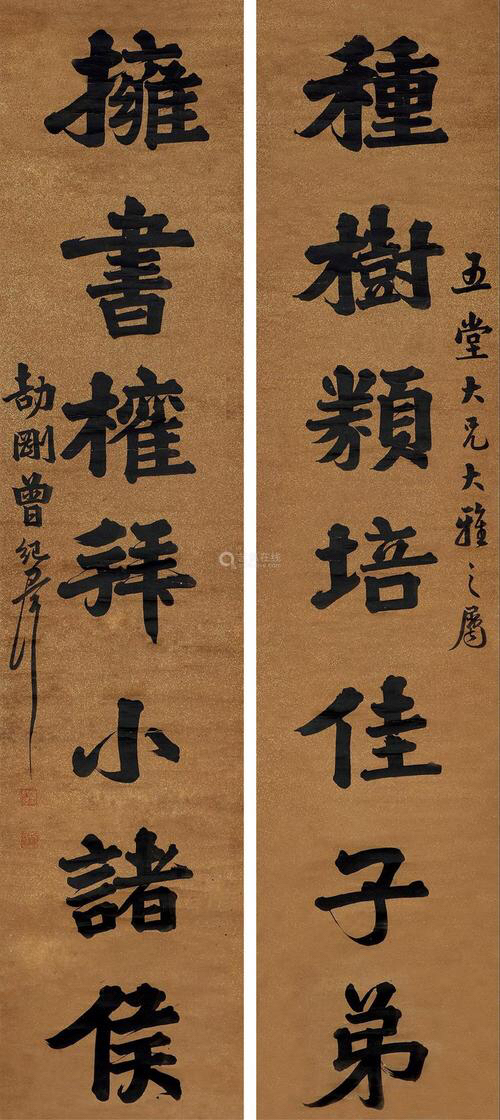 五堂大兄大雅之屬
種樹類培佳子弟
擁書權拜小諸侯
劼剛曾紀澤